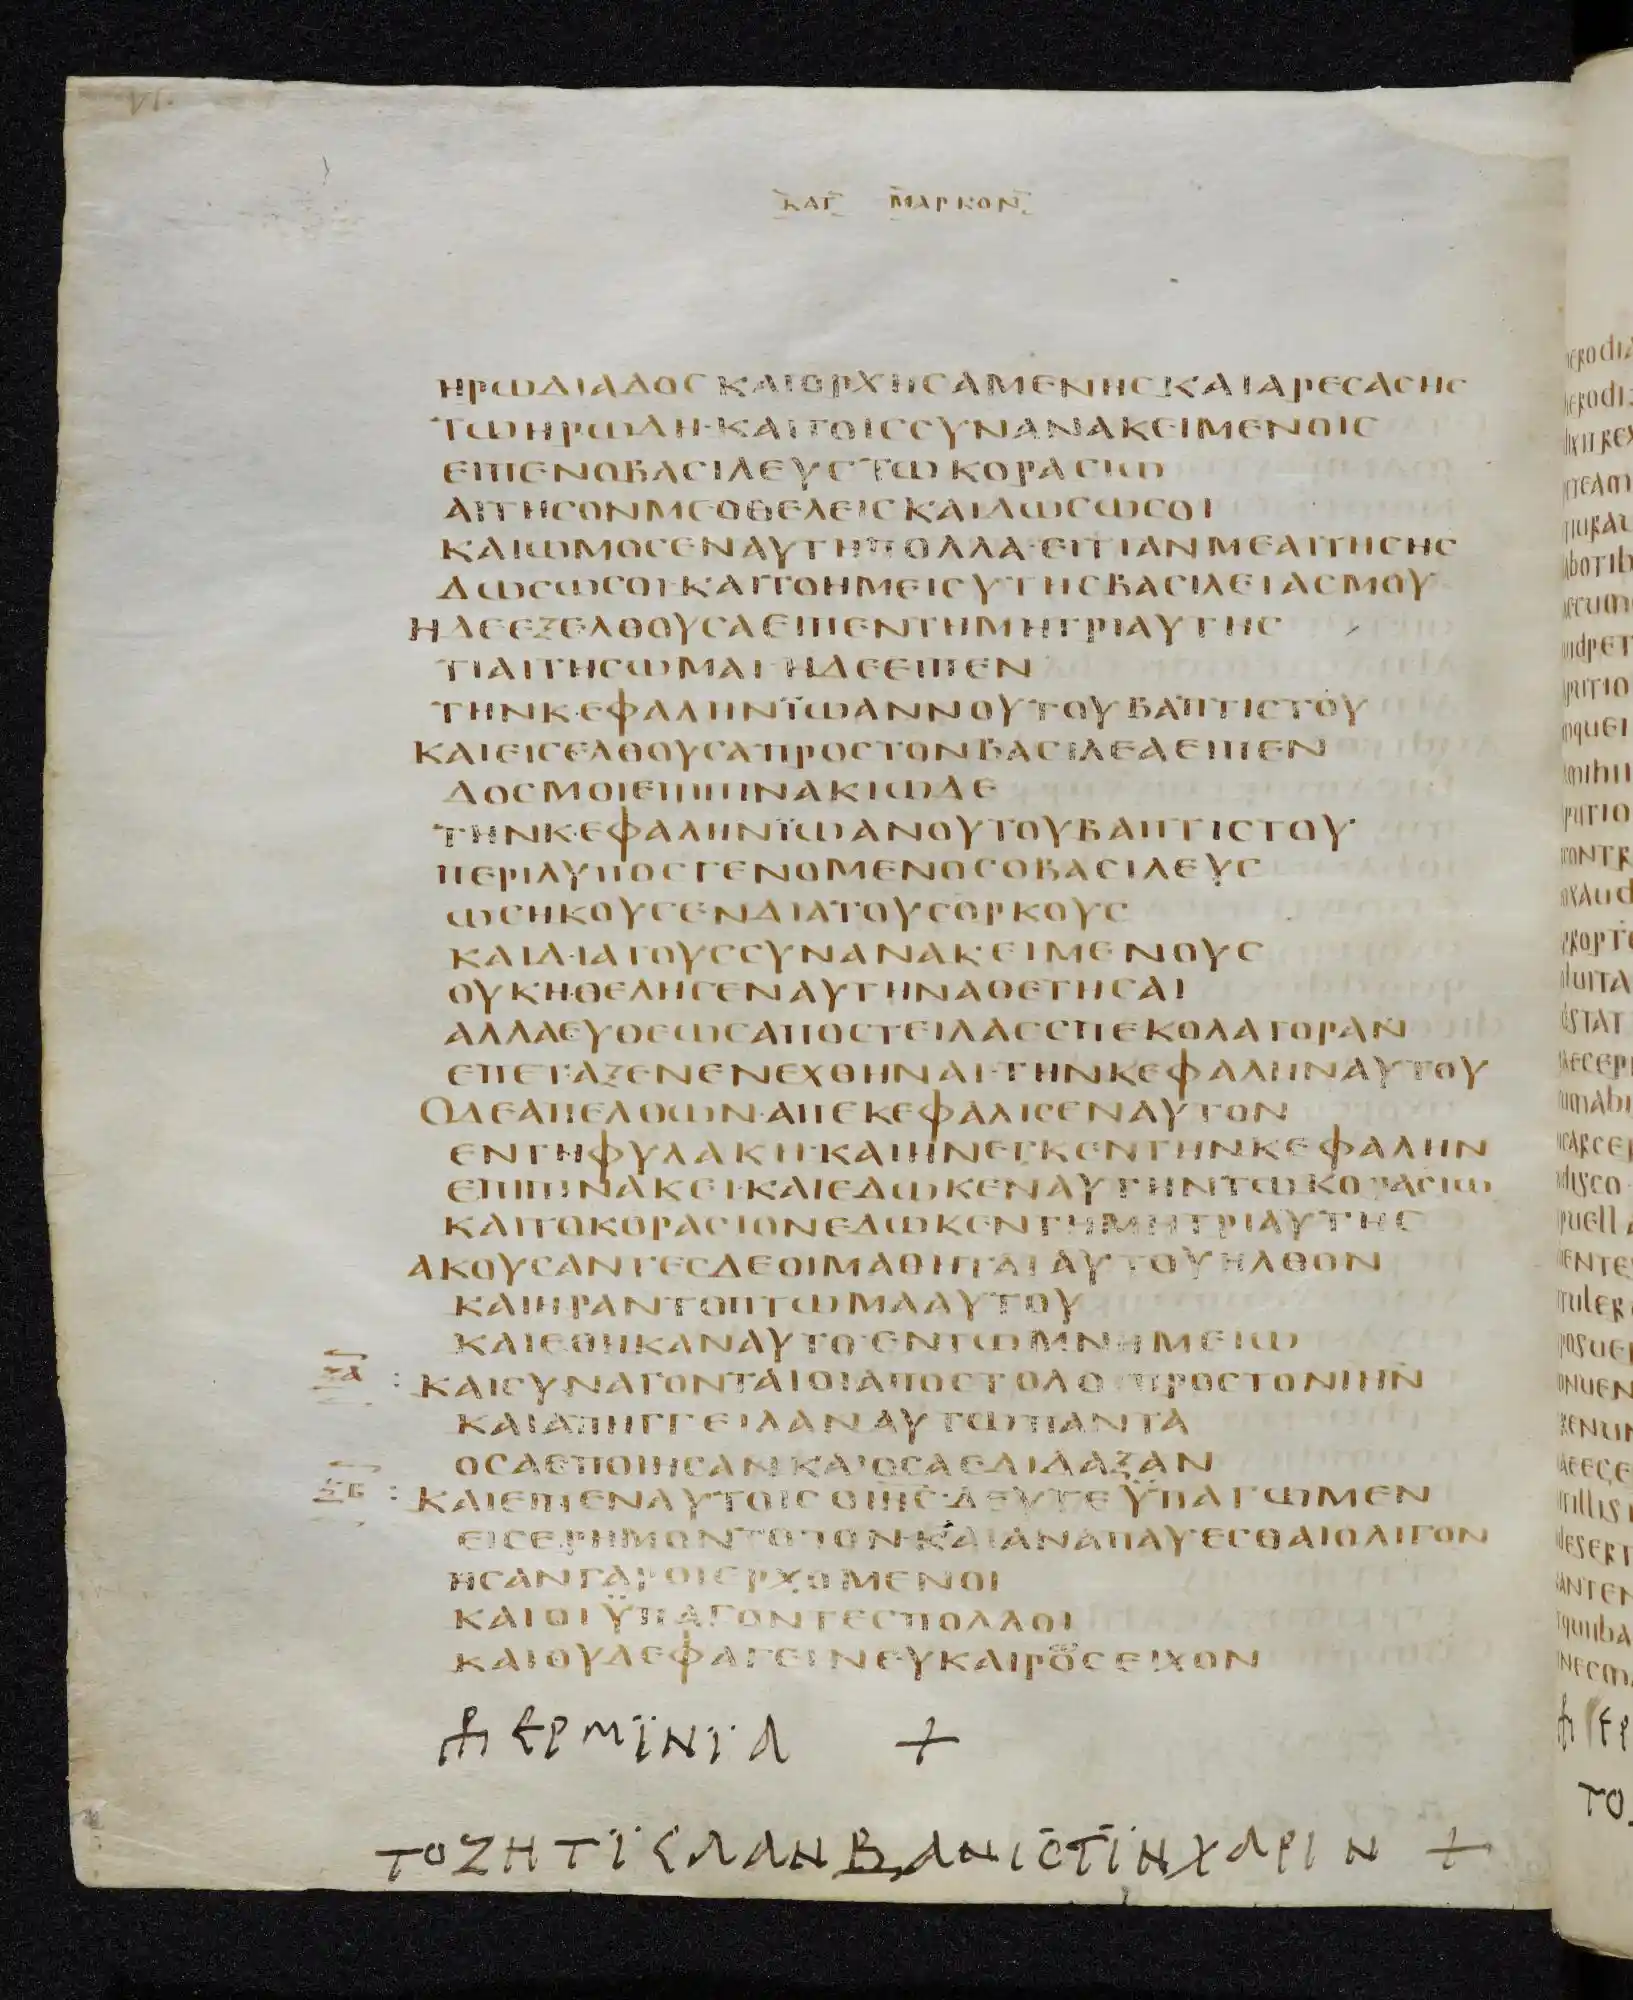 ΚΑΤ ΜΑΡΚΟΝ
ΗΡΩΔΙΑΔΟΣ ΚΑΙ ΟΡΧΗΣΑΜΕΝΗΣ ΚΑΙ ΑΡΕΣΑΣΗΣ
ΤΩ ΗΡΩΔΗ· ΚΑΙ ΤΟΙΣ ΣΥΝΑΝΑΚΕΙΜΕΝΟΙΣ
ΕΙΠΕΝ Ο ΒΑΣΙΛΕΥΣ ΤΩ ΚΟΡΑΣΙΩ
ΑΙΤΗΣΟΝ ΜΕ Ο ΘΕΛΕΙΣ ΚΑΙ ΔΩΣΩ ΣΟΙ
ΚΑΙ ΩΜΟΣΕΝ ΑΥΤΗ ΠΟΛΛΑ· ΕΙ ΤΙ ΑΝ ΜΕ ΑΙΤΗΣΗΣ
ΔΩΣΩ ΣΟΙ· ΚΑΙ ΤΟ ΗΜΕΙΣΥ ΤΗΣ ΒΑΣΙΛΕΙΑΣ ΜΟΥ
Η ΔΕ ΕΞΕΛΘΟΥΣΑ ΕΙΠΕΝ ΤΗ ΜΗΤΡΙ ΑΥΤΗΣ
ΤΙ ΑΙΤΗΣΩΜΑΙ· Η ΔΕ ΕΙΠΕΝ
ΤΗΝ ΚΕΦΑΛΗΝ ΪΩΑΝΝΟΥ ΤΟΥ ΒΑΠΤΙΣΤΟΥ
ΚΑΙ ΕΙΣΕΛΘΟΥΣΑ ΠΡΟΣ ΤΟΝ ΒΑΣΙΛΕΑ ΕΙΠΕΝ
ΔΟΣ ΜΟΙ ΕΠΙ ΠΙΝΑΚΙ ΩΔΕ
ΤΗΝ ΚΕΦΑΛΗΝ ΪΩΑΝΟΥ ΤΟΥ ΒΑΠΤΙΣΤΟΥ
ΠΕΡΙΛΥΠΟΣ ΓΕΝΟΜΕΝΟΣ Ο ΒΑΣΙΛΕΥΣ
ΩΣ ΗΚΟΥΣΕΝ ΔΙΑ ΤΟΥΣ ΟΡΚΟΥΣ
ΚΑΙ ΔΙΑ ΤΟΥΣ ΣΥΝΑΝΑΚΕΙΜΕΝΟΥΣ
ΟΥΚ ΗΘΕΛΗΣΕΝ ΑΥΤΗΝ ΑΘΕΤΗΣΑΙ
ΑΛΛΑ ΕΥΘΕΩΣ ΑΠΟΣΤΕΙΛΑΣ ΣΠΕΚΟΛΑΤΟΡΑΝ
ΕΠΕΤΑΞΕΝ ΕΝΕΧΘΗΝΑΙ· ΤΗΝ ΚΕΦΑΛΗΝ ΑΥΤΟΥ
Ο ΔΕ ΑΠΕΛΘΩΝ· ΑΠΕΚΕΦΑΛΙΣΕΝ ΑΥΤΟΝ
ΕΝ ΤΗ ΦΥΛΑΚΗ· ΚΑΙ ΗΝΕΓΚΕΝ ΤΗΝ ΚΕΦΑΛΗΝ
ΕΠΙ ΠΙΝΑΚΕΙ· ΚΑΙ ΕΔΩΚΕΝ ΑΥΤΗΝ ΤΩ ΚΟΡΑΣΙΩ
ΚΑΙ ΤΟ ΚΟΡΑΣΙΟΝ ΕΔΩΚΕΝ ΤΗ ΜΗΤΡΙ ΑΥΤΗΣ
ΑΚΟΥΣΑΝΤΕΣ ΔΕ ΟΙ ΜΑΘΗΤΑΙ ΑΥΤΟΥ ΗΛΘΟΝ
ΚΑΙ ΗΡΑΝ ΤΟ ΠΤΩΜΑ ΑΥΤΟΥ
ΚΑΙ ΕΘΗΚΑΝ ΑΥΤΟ· ΕΝ ΤΩ ΜΝΗΜΕΙΩ
ΞΑ : ΚΑΙ ΣΥΝΑΓΟΝΤΑΙ ΟΙ ΑΠΟΣΤΟΛΟΙ ΠΡΟΣ ΤΟΝ ΙΗΝ
ΚΑΙ ΑΠΗΓΓΕΙΛΑΝ ΑΥΤΩ ΠΑΝΤΑ
ΟΣΑ ΕΠΟΙΗΣΑΝ ΚΑΙ ΟΣΑ ΕΔΙΔΑΞΑΝ
ΞΒ : ΚΑΙ ΕΙΠΕΝ ΑΥΤΟΙΣ Ο ΙΗΣ· ΔΕΥΤΕ ΫΠΑΓΩΜΕΝ
ΕΙΣ ΕΡΗΜΟΝ ΤΟΠΟΝ· ΚΑΙ ΑΝΑΠΑΥΕΣΘΑΙ ΟΛΙΓΟΝ
ΗΣΑΝ ΓΑΡ ΟΙ ΕΡΧΟΜΕΝΟΙ
ΚΑΙ ΟΙ ΫΠΑΓΟΝΤΕΣ ΠΟΛΛΟΙ
ΚΑΙ ΟΥΔΕ ΦΑΓΕΙΝ ΕΥΚΑΙΡΟΣ ΕΙΧΟΝ
ΕΡΜΪΝΪΑ +
ΤΟ ΖΗΤΪΣ ΛΑΝΒΑΝΙΣ ΤΪΝ ΧΑΡΙΝ +